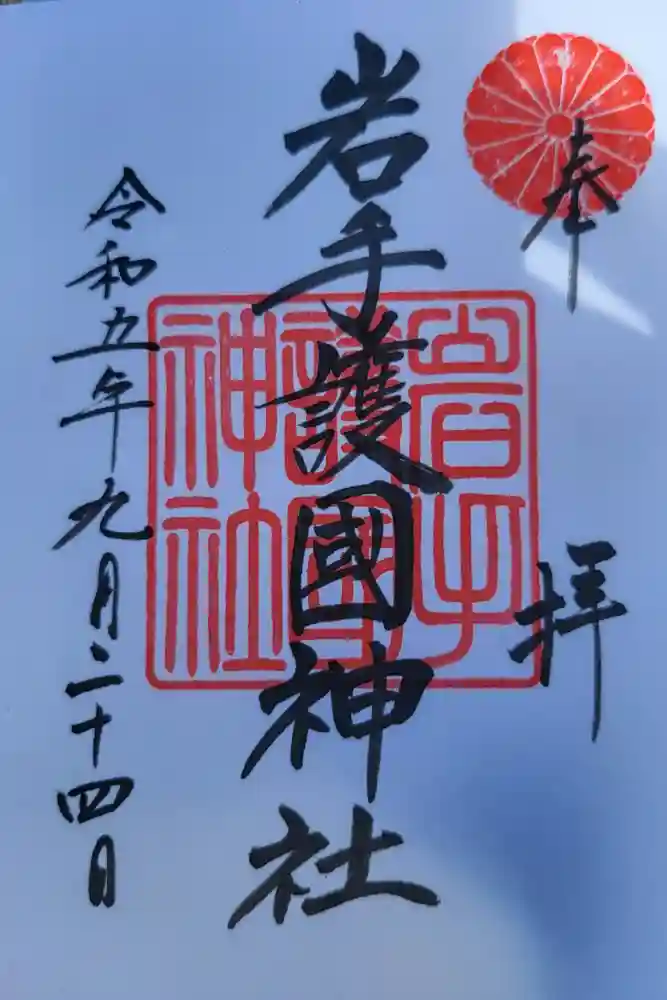 奉拝
岩手護國神社
令和五年九月二十四日
岩手
護國
神社